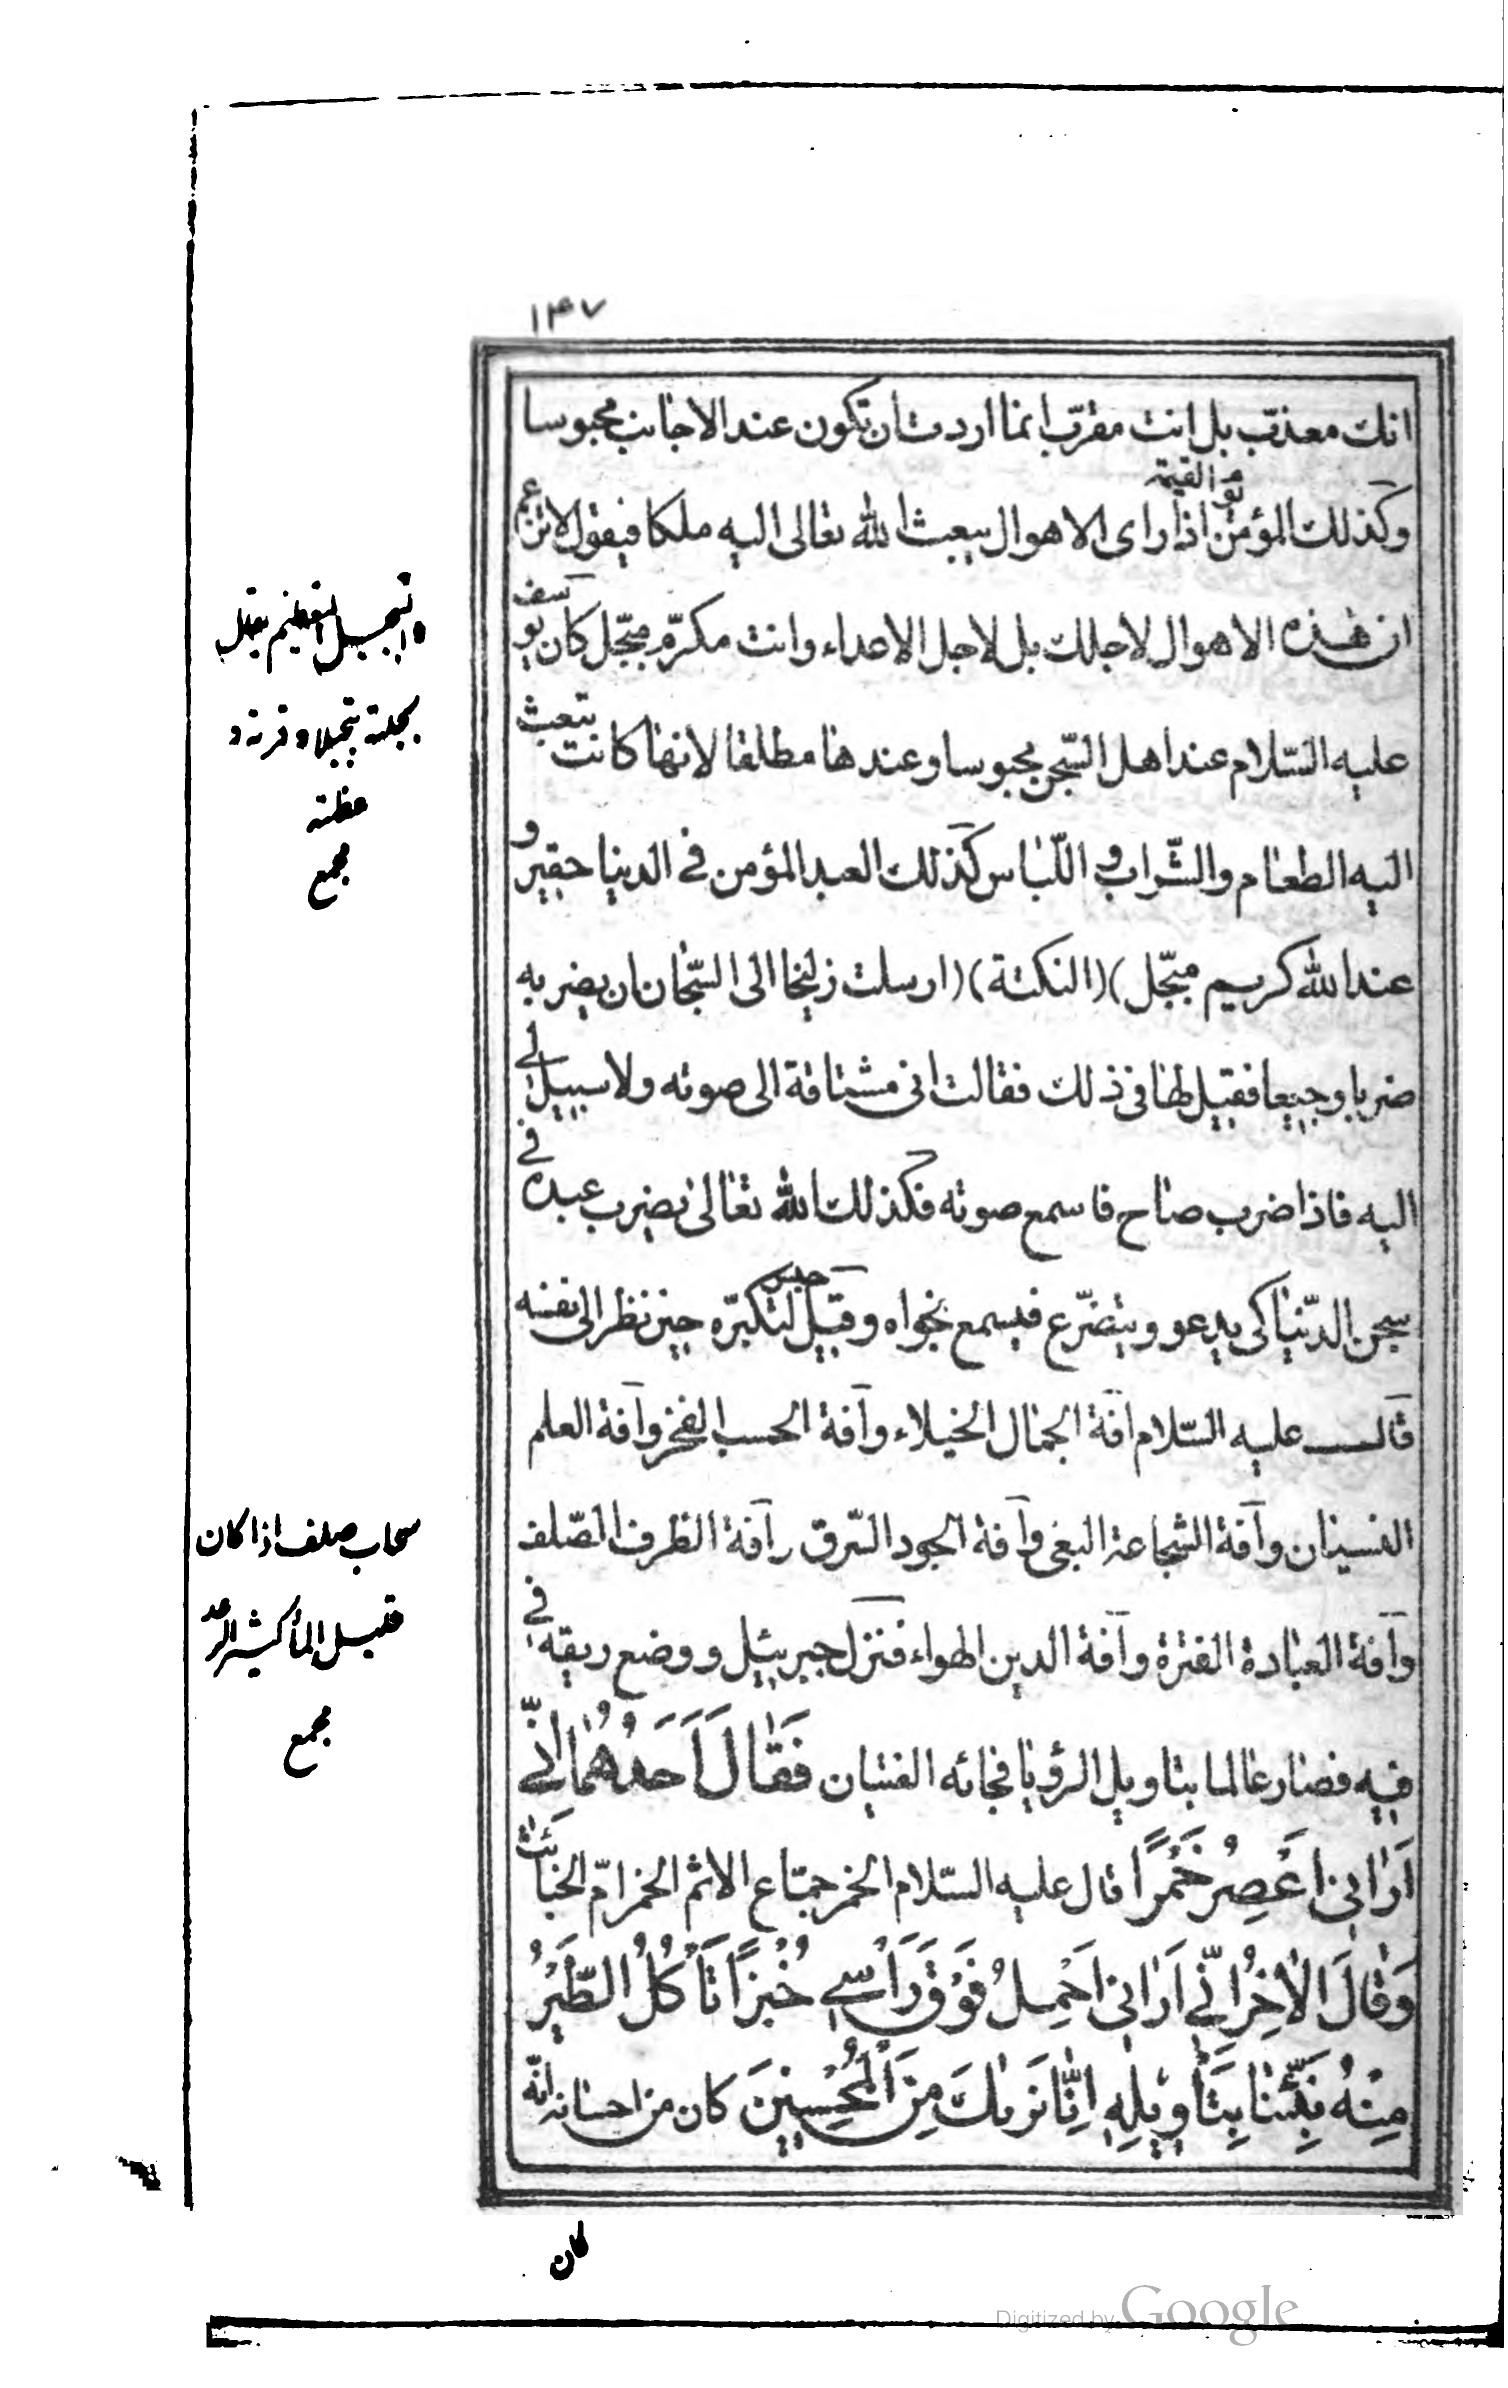 ۱۴۷
انك معذّب بل انت مقرّب انما اردت ان تكون عند الاجانب محبوسا
وكذلك المؤمن اذا راى الاهوال يوم القيمة يبعث الله تعالى اليه ملكا فيقول لاتن عم
ان هذه الاهوال لاجلك بل لاجل الاعداء وانت مكرّم مبجّل كان يوسف
عليه السّلام عند اهل السّجن محبوسا وعندها مطلقا لانها كانت تبعث
اليه الطعام والشّراب و اللّباس كذلك العبد المؤمن فى الدنيا حقير و
عند الله كريم مبجّل)(النكتة)(ارسلت زليخا الى السّجان ان يضربه
ضربا وجيعا فقيل لها فى ذلك فقالت انى مشتاقة الى صوته ولا سبيل لى
اليه فاذا ضرب صاح فاسمع صوته فكذلك الله تعالى يضرب عبده فى
سجن الدّنيا كى يدعو ويتضرّع فيسمع نجواه وقيل حبس لتكبّره حين نظر الى نفسه
قال عليه السّلام آفة الجمال الخيلاء وآفة الحسب الفخر وآفة العلم
النسيان وآفة الشجاعة البغى وآفة الجود السّرق وآفة الظرف الصّلف
وآفة العبادة الفترة وآفة الدين الهواء فنزل جبرئيل ووضع ريقه فى
فيه فصار عالما بتاويل الرؤيا فجائه الفتيان فَقٰالَ اَحَدُهُمٰا اِنّٰى
اَرٰانِى اَعْصِرُ خَمْرًا قال عليه السّلام الخمر جمّاع الاثم الخمر امّ الخبائث
وَقٰالَ الْاٰخَرُ اِنّٰى اَرٰانِى اَحْمِلُ فَوْقَ رَأْسِى خُبْزًا تَأْكُلُ الطَّيْرُ
مِنْهُ نَبِّئْنٰا بِتَأْوِيلِهِ اِنّٰا نَرٰيكَ مِنَ الْمُحْسِنِينَ كان من احسانه انّه
كان
والتبجيل التعظيم يقال
بجلته تبجيلا وقرته و
عظمته
مجمع
سحاب صلف اذا كان
قليل الماء كثير الرعد
مجمع
Digitized by Google